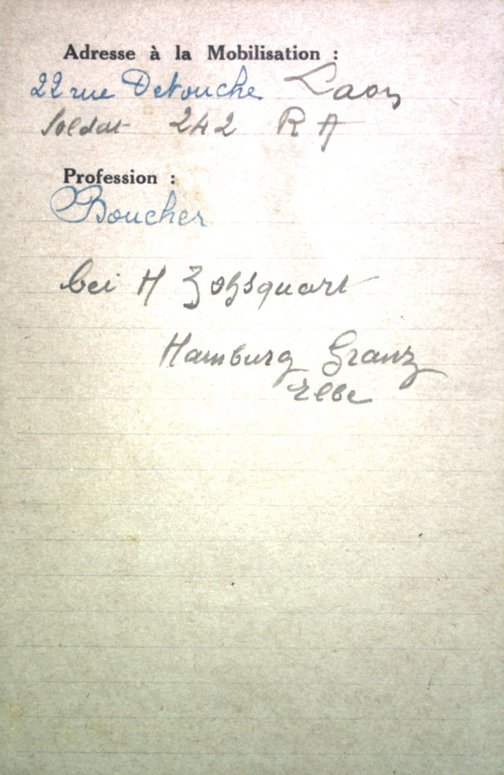 Adresse à la Mobilisation :
22 rue Devouche Laon
Soldat 242 R A
Profession :
Boucher
bei H
Hamburg Granz
Elbe